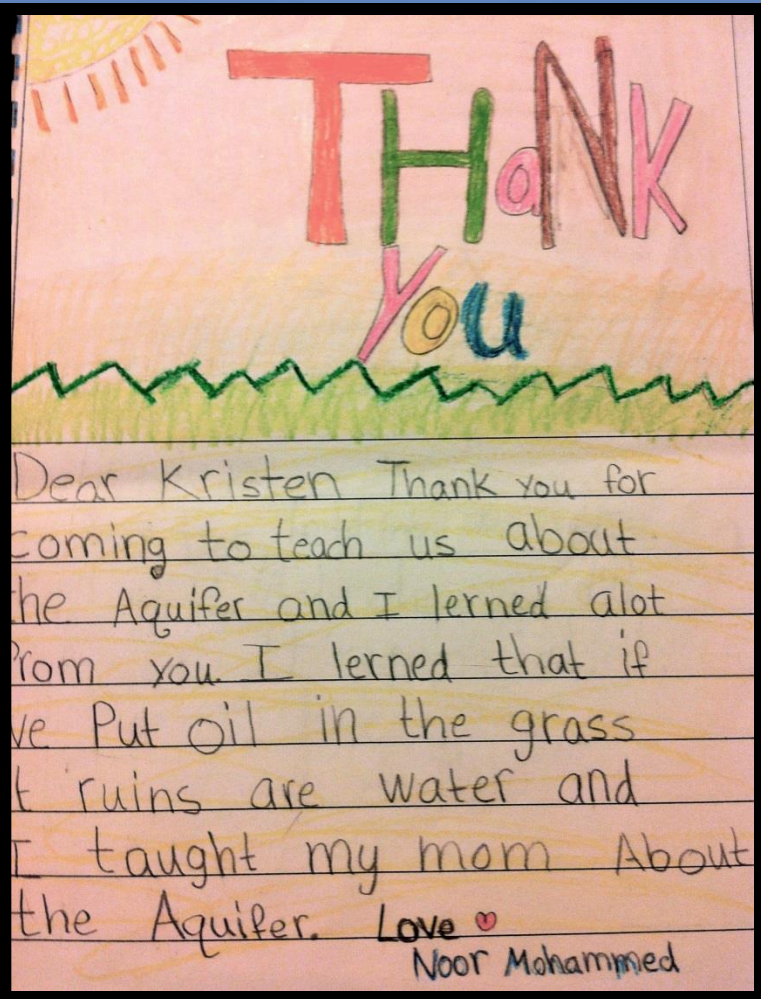 THaNK
you
Dear Kristen Thank you for
coming to teach us about
the Aquifer and I lerned alot
from you. I lerned that if
we Put oil in the grass
t ruins are water and
I taught my mom About
the Aquifer. Love
Noor Mohammed